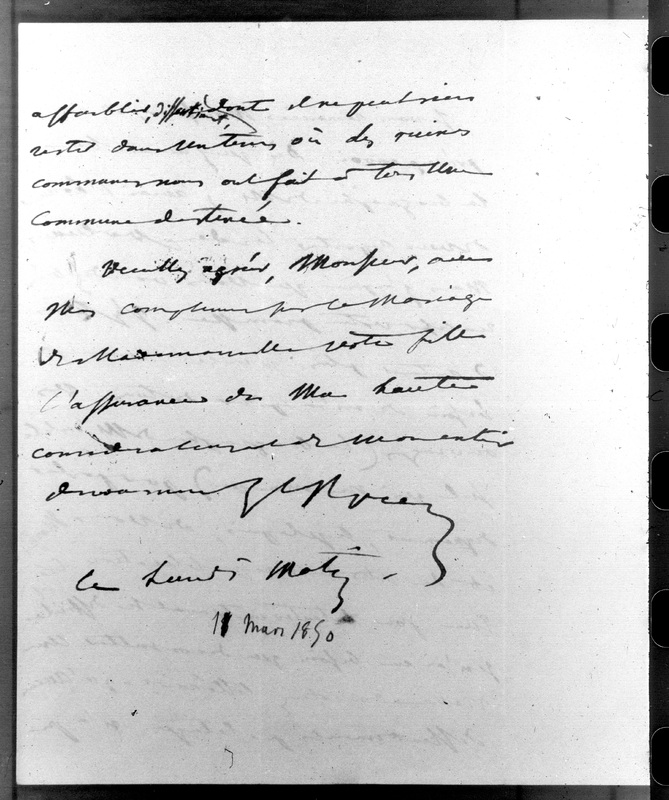 affaiblie, dont il ne peut rien
rester dans un tems où des ruines
communes nous ont fait à tous une
Commune destinée.
Veuillez agréer, Monsieur, avec
mes compliments sur le Mariage
de Mademoiselle votre fille
l'assurance de Ma haute
considération et de Mon entier
dévouement
ce Lundi Matin.
11 Mars 1850